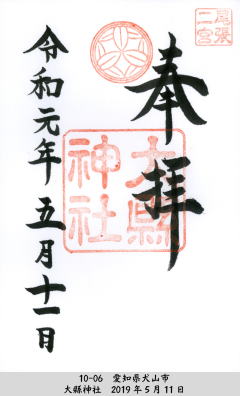 尾張
二宮
奉拝
大縣
神社
令和元年五月十一日
10-06 愛知県犬山市
大縣神社 2019年5月11日